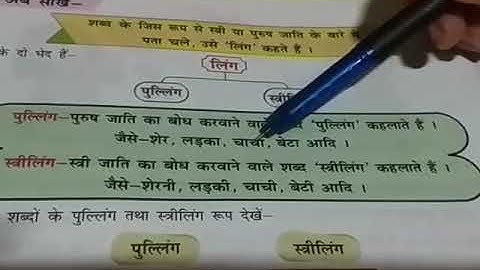 शब्द के जिस रूप से स्त्री या पुरुष जाति के बारे में
पता चले, उसे 'लिंग' कहते हैं ।
के दो भेद हैं-
लिंग
पुल्लिंग
पुल्लिंग-पुरुष जाति का बोध करवाने वाले 'पुल्लिंग' कहलाते हैं ।
जैसे-शेर, लड़का, चाचा, बेटा आदि ।
स्त्रीलिंग-स्त्री जाति का बोध करवाने वाले शब्द 'स्त्रीलिंग' कहलाते हैं ।
जैसे-शेरनी, लड़की, चाची, बेटी आदि ।
शब्दों के पुल्लिंग तथा स्त्रीलिंग रूप देखें-
पुल्लिंग स्त्रीलिंग